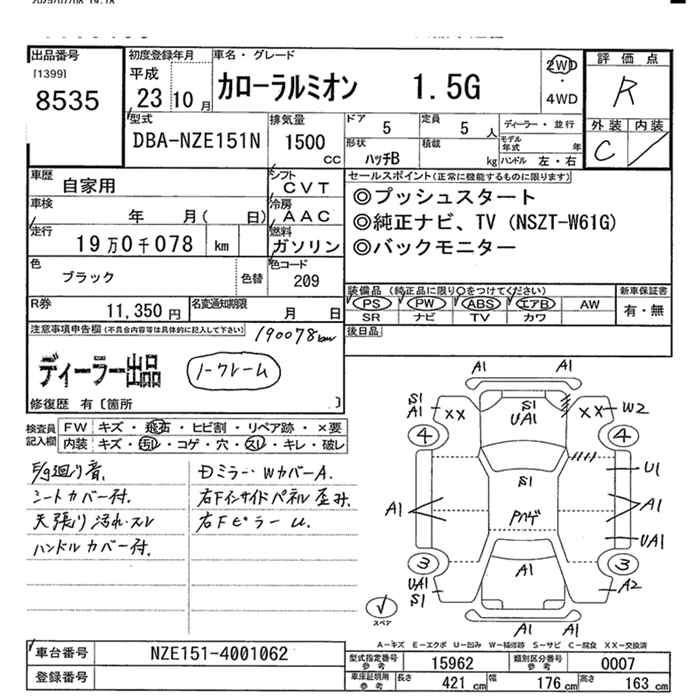 2025/07/08 19:18
出品番号
[1399]
8535
初度登録年月
平成
23 10 月
車名・グレード
カローラルミオン 1.5G
2WD
・
4WD
評価点
R
外装 内装
C
型式
DBA-NZE151N
排気量
1500
CC
ドア
5
定員
5 人
形状
ハッチB
積載
kg
ディーラー・並行
モデル年式 年
ハンドル 左・右
車歴
自家用
シフト
CVT
車検
年 月( 日)
冷房
AAC
走行
19万0千078 km
燃料
ガソリン
色
ブラック
色替
色コード
209
R券
11,350 円
名変通知期限
月 日
セールスポイント(正常に機能するものに限ります)
◎プッシュスタート
◎純正ナビ、TV (NSZT-W61G)
◎バックモニター
装備品 (純正品に限り○をつけてください)
PS PW ABS エアB AW
SR ナビ TV カワ
新車保証書
有・無
後日品
注意事項申告欄(不具合内容等は具体的に記入して下さい)
190078km
ディーラー出品
ノークレーム
修復歴 有〔箇所 〕
検査員記入欄
FW キズ・飛石・ヒビ割・リペア跡・×要
内装 キズ・汚れ・コゲ・穴・スレ・キレ・破レ
E/g廻り音.
シートカバー付.
天張り汚れ・スレ
ハンドルカバー付.
Dミラー・WカバーA.
右Fインサイドパネル歪み.
右FピラーU.
A1
A1
S1
A1
XX
S1
UA1
XX
W2
4
4
S1
U1
A1
A1
Pハゲ
UA1
3
3
UA1
S1
A1
A2
A1
A1
スペア
A-キズ E-エクボ U-凹み W-補修跡 S-サビ C-腐食 XX-交換済
車台番号
NZE151-4001062
登録番号
型式指定番号
参考
15962
類別区分番号
参考
0007
車庫証明用
参考
長さ 421 cm
幅 176 cm
高さ 163 cm